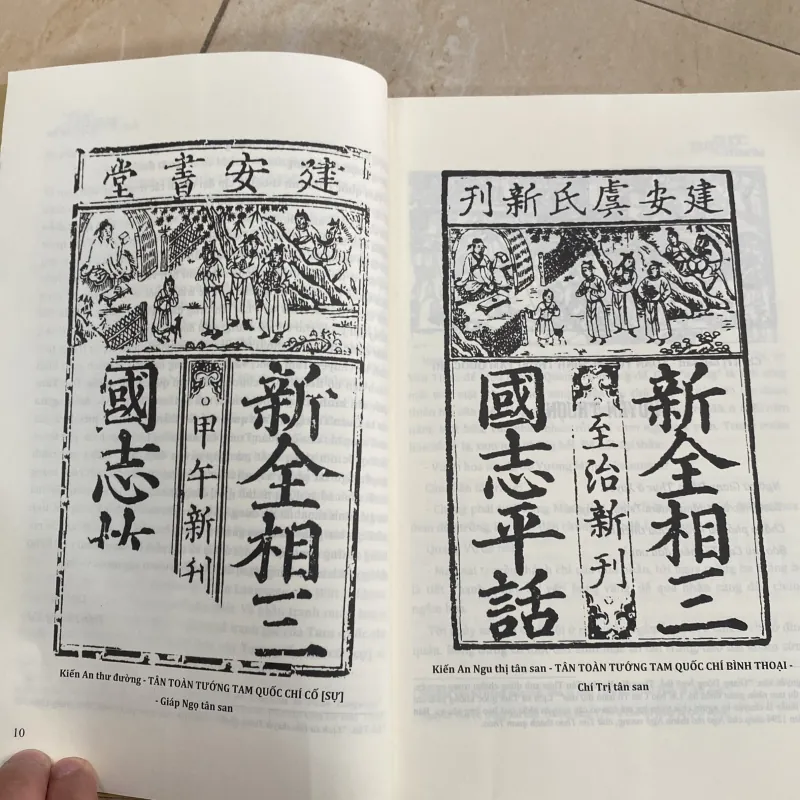 建安書堂
新全相三
甲午新刊
國志
Kiến An thư đường - TÂN TOÀN TƯỚNG TAM QUỐC CHÍ CỐ [SỰ]
- Giáp Ngọ tân san
10
建安虞氏新刊
新全相三
至治新刊
國志平話
Kiến An Ngu thị tân san - TÂN TOÀN TƯỚNG TAM QUỐC CHÍ BÌNH THOẠI -
Chí Trị tân san